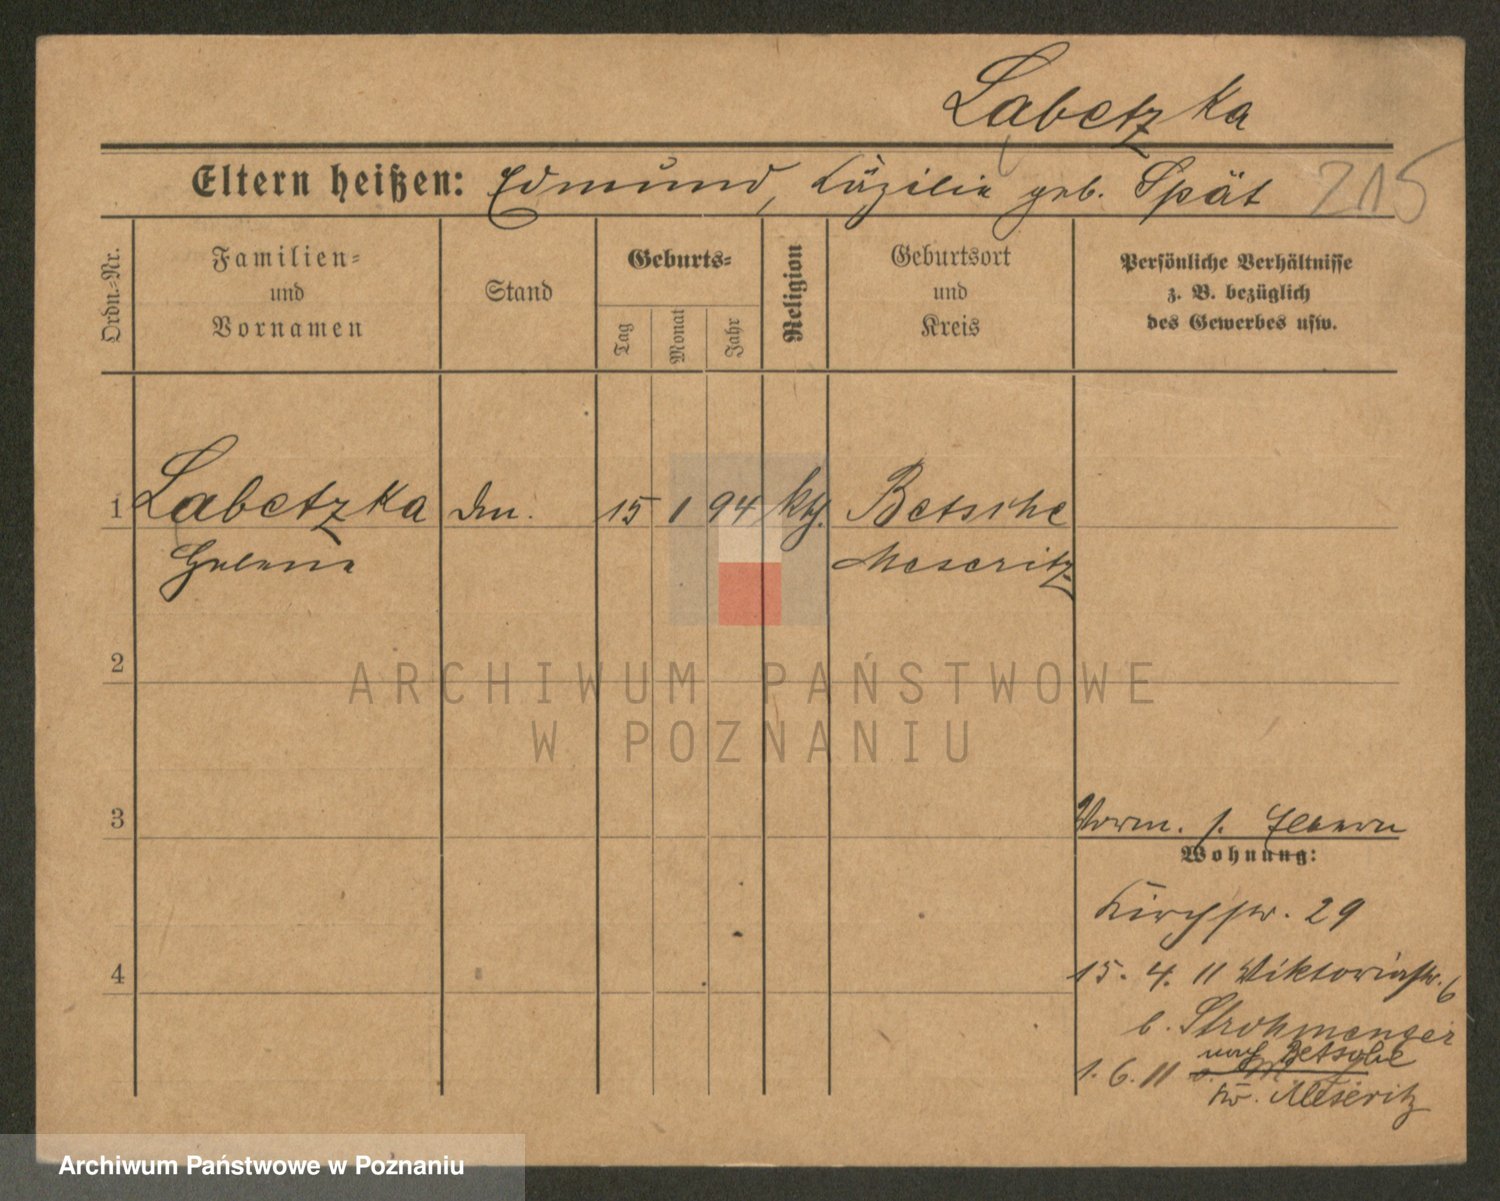 Labetzka
Eltern heißen: Edmund, Cäzilie geb. Spät 215
Ordn.-Nr.
Familien-
und
Vornamen
Stand
Geburts-
Tag
Monat
Jahr
Religion
Geburtsort
und
Kreis
Persönliche Verhältnisse
z. B. bezüglich
des Gewerbes usw.
1 Labetzka 15 1 94 kth. Betsche
Helene Meseritz
2
ARCHIWUM PAŃSTWOWE
W POZNANIU
3
Wohnung:
Kirchstr. 29
15. 4. 11 Viktoriastr. 6
b. Strohmenger
nach Betsche
1. 6. 11
Kr. Meseritz
4
Archiwum Państwowe w Poznaniu